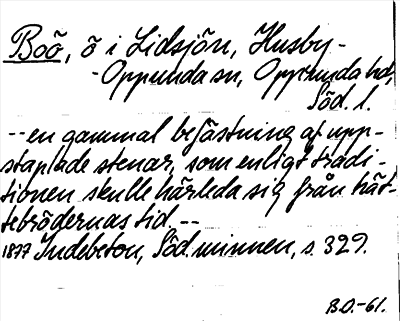 Boö, ö i Lidsjön, Husby-
-Oppunda sn, Oppunda hd,
Söd. l.
-- en gammal befästning af upp-
staplade stenar, som enligt tradi-
tionen skulle härleda sig från hät-
tebrödernas tid. --
1877 Indebetou, Söd. minnen, s. 329.
B.O.-61.